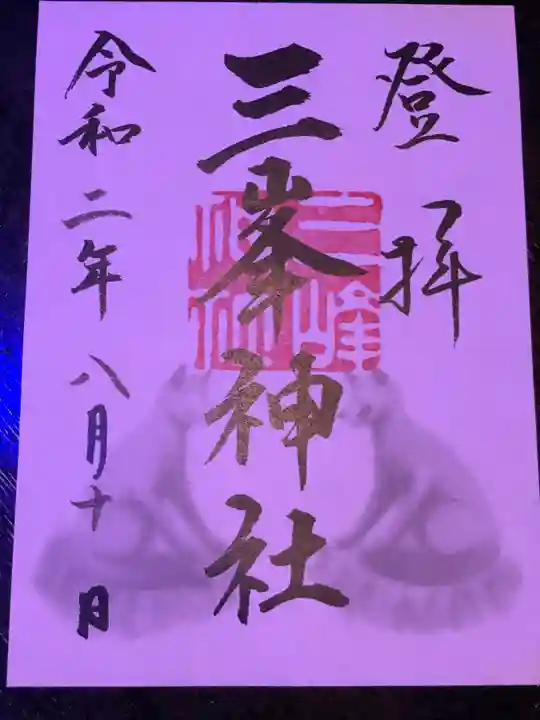 登拝
三峯神社
令和二年八月十日